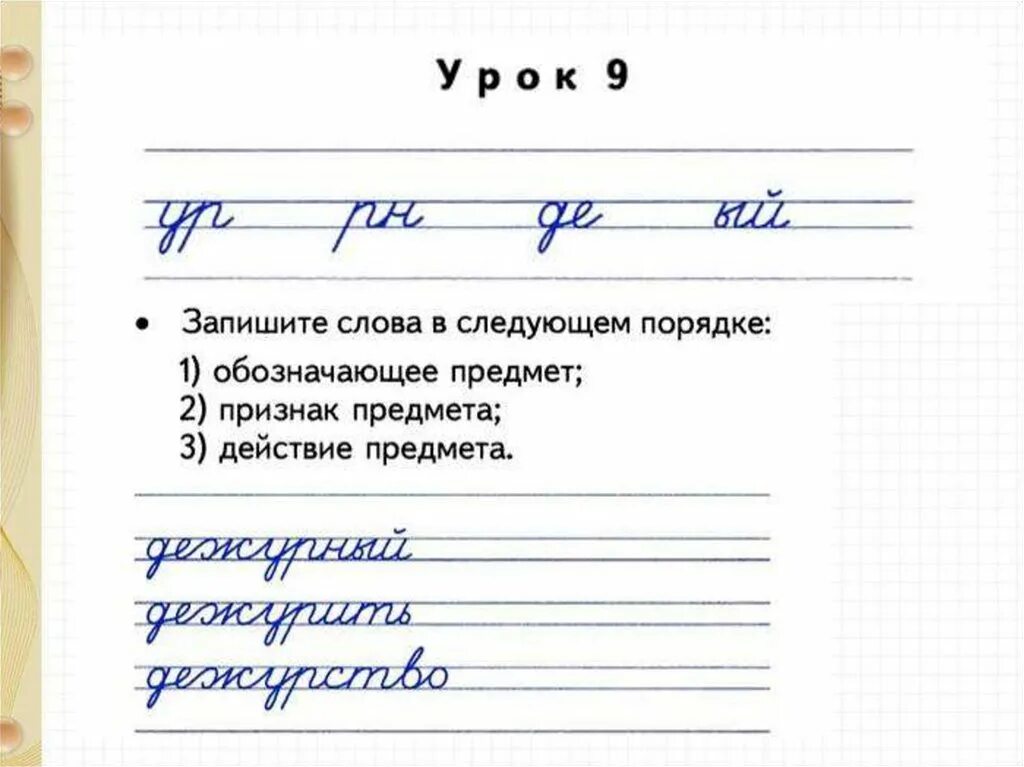 Урок 9
ур рн де ый
• Запишите слова в следующем порядке:
1) обозначающее предмет;
2) признак предмета;
3) действие предмета.
дежурный
дежурить
дежурство